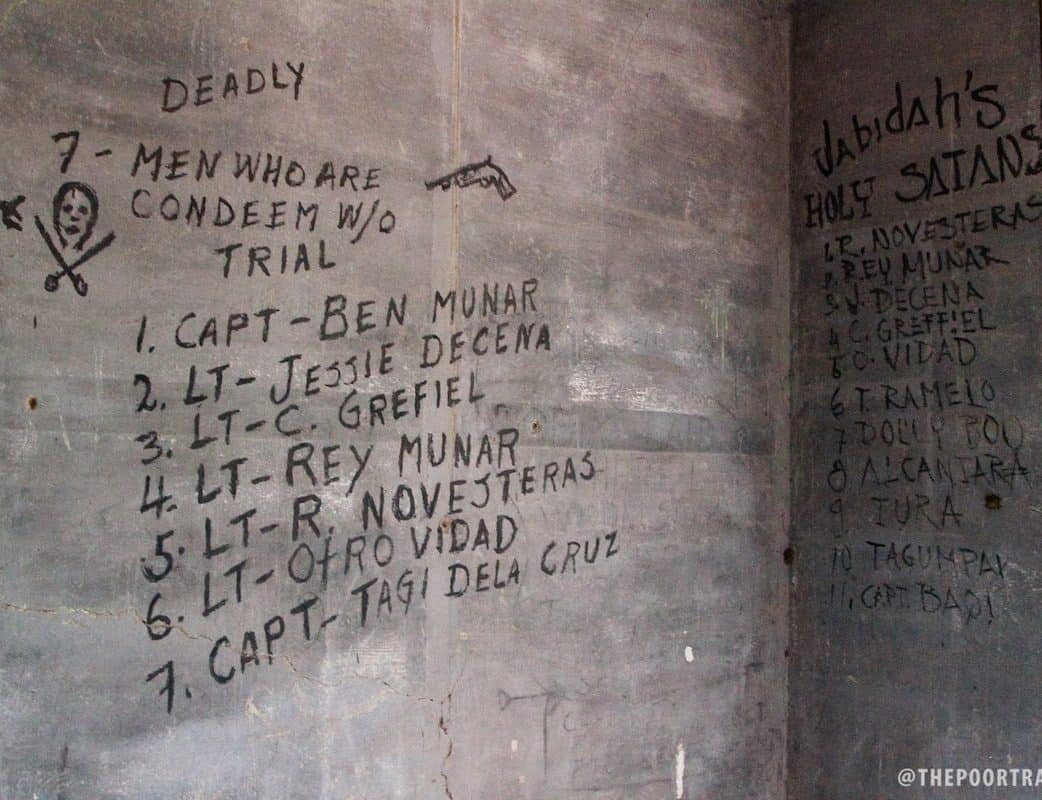 DEADLY
7 - MEN WHO ARE
CONDEEM W/O
TRIAL
1. CAPT - BEN MUNAR
2. LT - JESSIE DECENA
3. LT - C. GREFIEL
4. LT - REY MUNAR
5. LT - R. NOVESTERAS
6. LT - OTRO VIDAD
7. CAPT - TAGI DELA CRUZ
Jabidah's
HOLY SATANS
1. R. NOVESTERAS
2. REY MUNAR
3 J. DECENA
4 C. GREFFIEL
5 O. VIDAD
6 T. RAMELO
7 DOLLY
8 ALCANTARA
9 TURA
10 TAGUMPAY
11. CAPT. BAQI
@THEPOORTRA